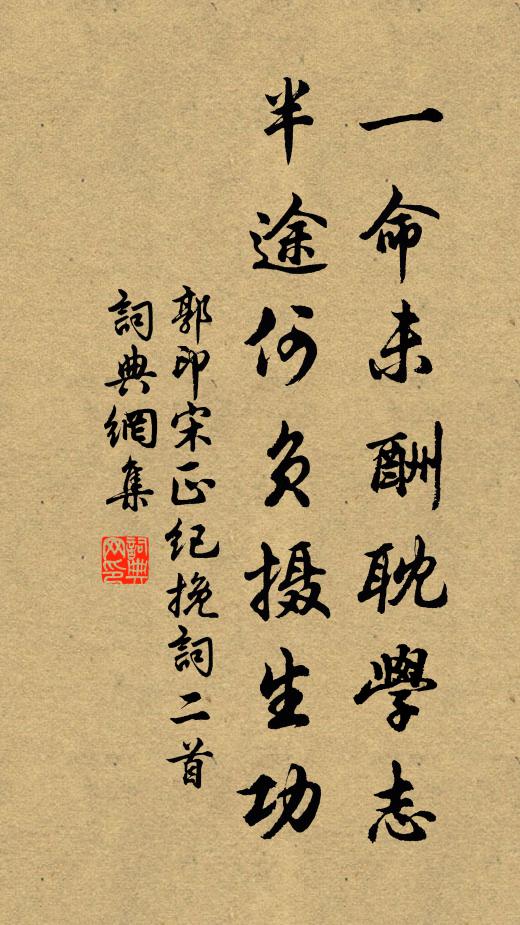 一命未酬耽學志
半途何负摄生功
郭印宋正纪挽詞二首
詞典網集
詞典网印